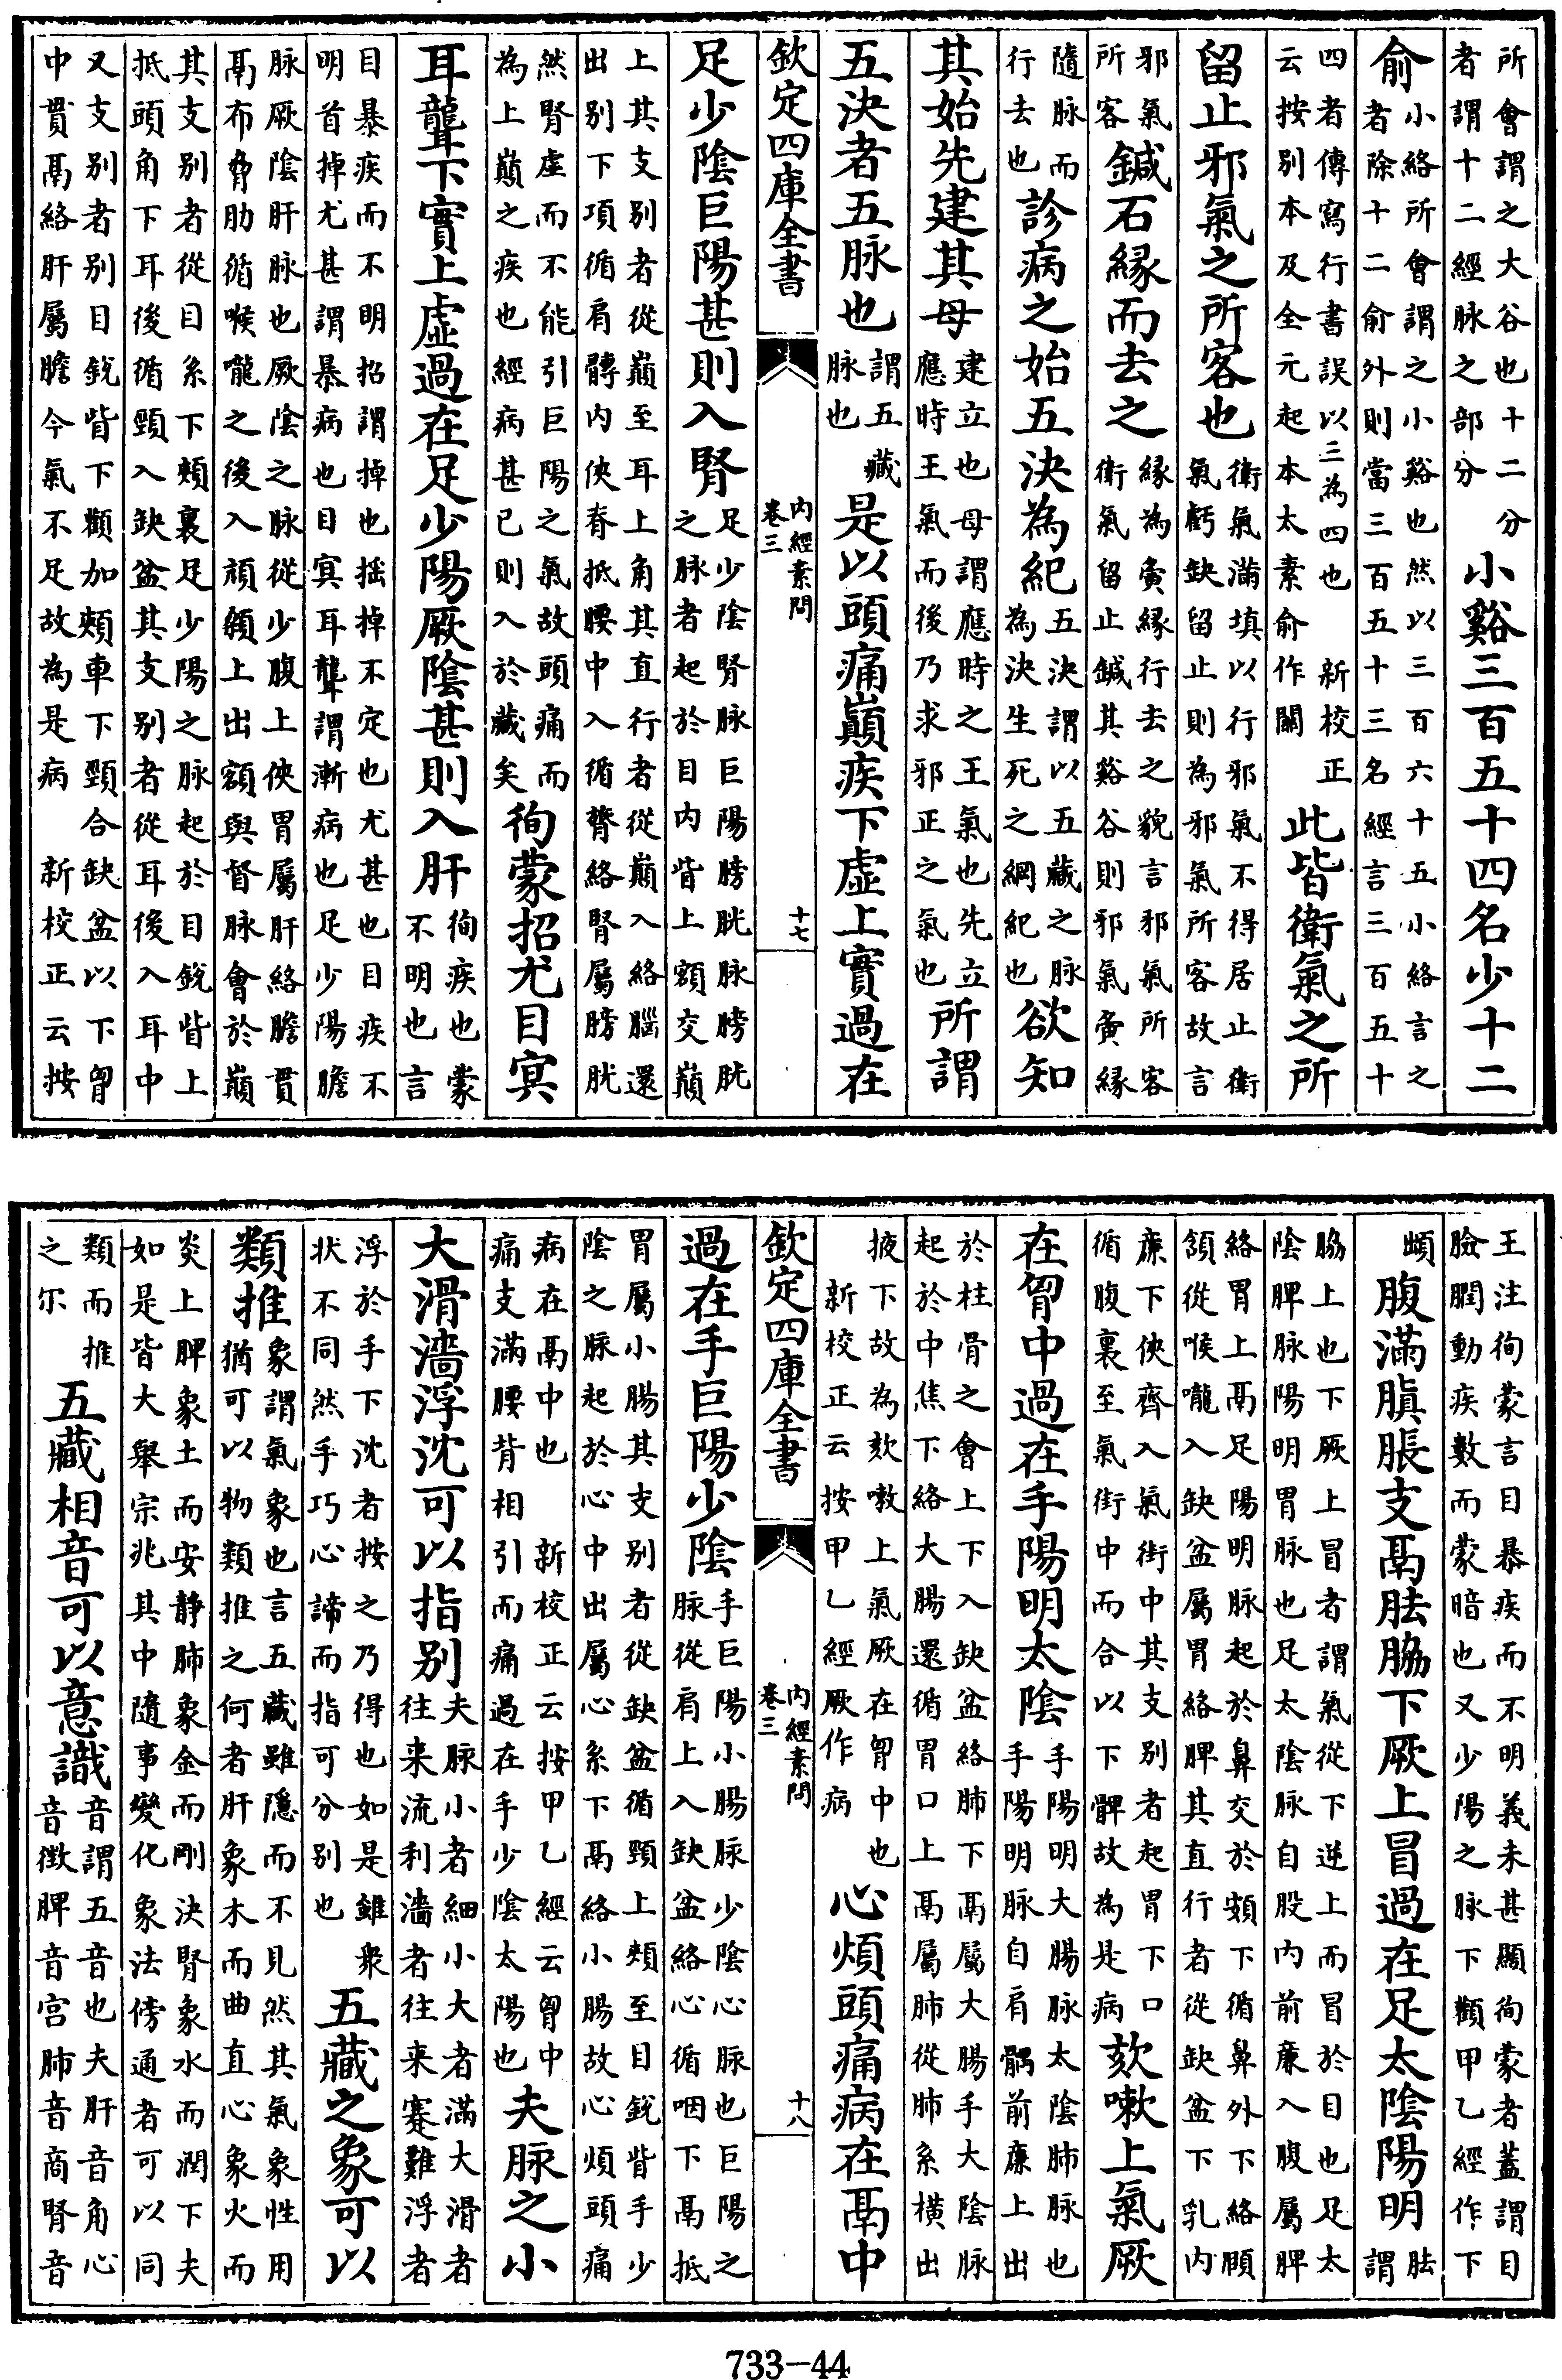 所會謂之大谷也十二分
者謂十二經脉之部分
小谿三百五十四名少十二
俞
小絡所會謂之小谿也然以三百六十五小絡言之
者除十二俞外則當三百五十三名經言三百五十
四者傳寫行書誤以三為四也 新校正
云按别本及全元起本太素俞作關
此皆衛氣之所
留止邪氣之所客也
衛氣滿填以行邪氣不得居止衛
氣虧缺留止則為邪氣所客故言
邪氣
所客
鍼石緣而去之
緣為夤緣行去之貌言邪氣所客
衛氣留止鍼其谿谷則邪氣夤緣
隨脉而
行去也
診病之始五決為紀
五決謂以五藏之脉
為決生死之綱紀也
欲知
其始先建其母
建立也母謂應時之王氣也先立
應時王氣而後乃求邪正之氣也
所謂
五決者五脉也
謂五藏
脉也
是以頭痛巔疾下虛上實過在
欽定四庫全書
内經素問
卷三
十七
足少陰巨陽甚則入腎
足少陰腎脉巨陽膀胱脉膀胱
之脉者起於目内眥上額交巔
上其支别者從巔至耳上角其直行者從巔入絡腦還
出别下項循肩髆内俠脊抵腰中入循膂絡腎屬膀胱
然腎虛而不能引巨陽之氣故頭痛而
為上巔之疾也經病甚已則入於藏矣
徇蒙招尤目㝠
耳聾下實上虛過在足少陽厥陰甚則入肝
徇疾也蒙
不明也言
目暴疾而不明招謂掉也揺掉不定也尤甚也目疾不
明首掉尤甚謂暴病也目㝠耳聾謂漸病也足少陽膽
脉厥陰肝脉也厥陰之脉從少腹上俠胃屬肝絡膽貫
鬲布脅肋循喉嚨之後入頏顙上出額與督脉會於巔
其支别者從目系下頰裏足少陽之脉起於目銳眥上
抵頭角下耳後循頸入缺盆其支别者從耳後入耳中
又支别者别目銳眥下顴加頰車下頸合缺盆以下胷
中貫鬲絡肝屬膽今氣不足故為是病 新校正云按
王注徇蒙言目暴疾而不明義未甚顯徇蒙者蓋謂目
瞼瞤動疾數而蒙暗也又少陽之脉下顴甲乙經作下
䪼
腹滿䐜脹支鬲胠脇下厥上冒過在足太陰陽明
胠
謂
脇上也下厥上冒者謂氣從下逆上而冒於目也足太
陰脾脉陽明胃脉也足太陰脉自股内前廉入腹屬脾
絡胃上鬲足陽明脉起於鼻交於頞下循鼻外下絡頤
頷從喉嚨入缺盆屬胃絡脾其直行者從缺盆下乳内
廉下俠齊入氣街中其支别者起胃下口
循腹裏至氣街中而合以下髀故為是病
欬嗽上氣厥
在胷中過在手陽明太陰
手陽明大腸脉太陰肺脉也
手陽明脉自肩髃前廉上出
於柱骨之會上下入缺盆絡肺下鬲屬大腸手太陰脉
起於中焦下絡大腸還循胃口上鬲屬肺從肺系橫出
掖下故為欬嗽上氣厥在胷中也
新校正云按甲乙經厥作病
心煩頭痛病在鬲中
欽定四庫全書
内經素問
卷三
十八
過在手巨陽少陰
手巨陽小腸脉少陰心脉也巨陽之
脉從肩上入缺盆絡心循咽下鬲抵
胃屬小腸其支别者從缺盆循頸上頰至目銳眥手少
陰之脉起於心中出屬心系下鬲絡小腸故心煩頭痛
病在鬲中也 新校正云按甲乙經云胷中
痛支滿腰背相引而痛過在手少陰太陽也
夫脉之小
大滑濇浮沈可以指别
夫脉小者細小大者滿大滑者
往来流利濇者往来蹇難浮者
浮於手下沈者按之乃得也如是雖衆
狀不同然手巧心諦而指可分别也
五藏之象可以
類推
象謂氣象也言五藏雖隱而不見然其氣象性用
猶可以物類推之何者肝象木而曲直心象火而
炎上脾象土而安静肺象金而剛決腎象水而潤下夫
如是皆大舉宗兆其中隨事變化象法傍通者可以同
類而推
之尔
五藏相音可以意識
音謂五音也夫肝音角心
音徵脾音宫肺音商腎音
733—44